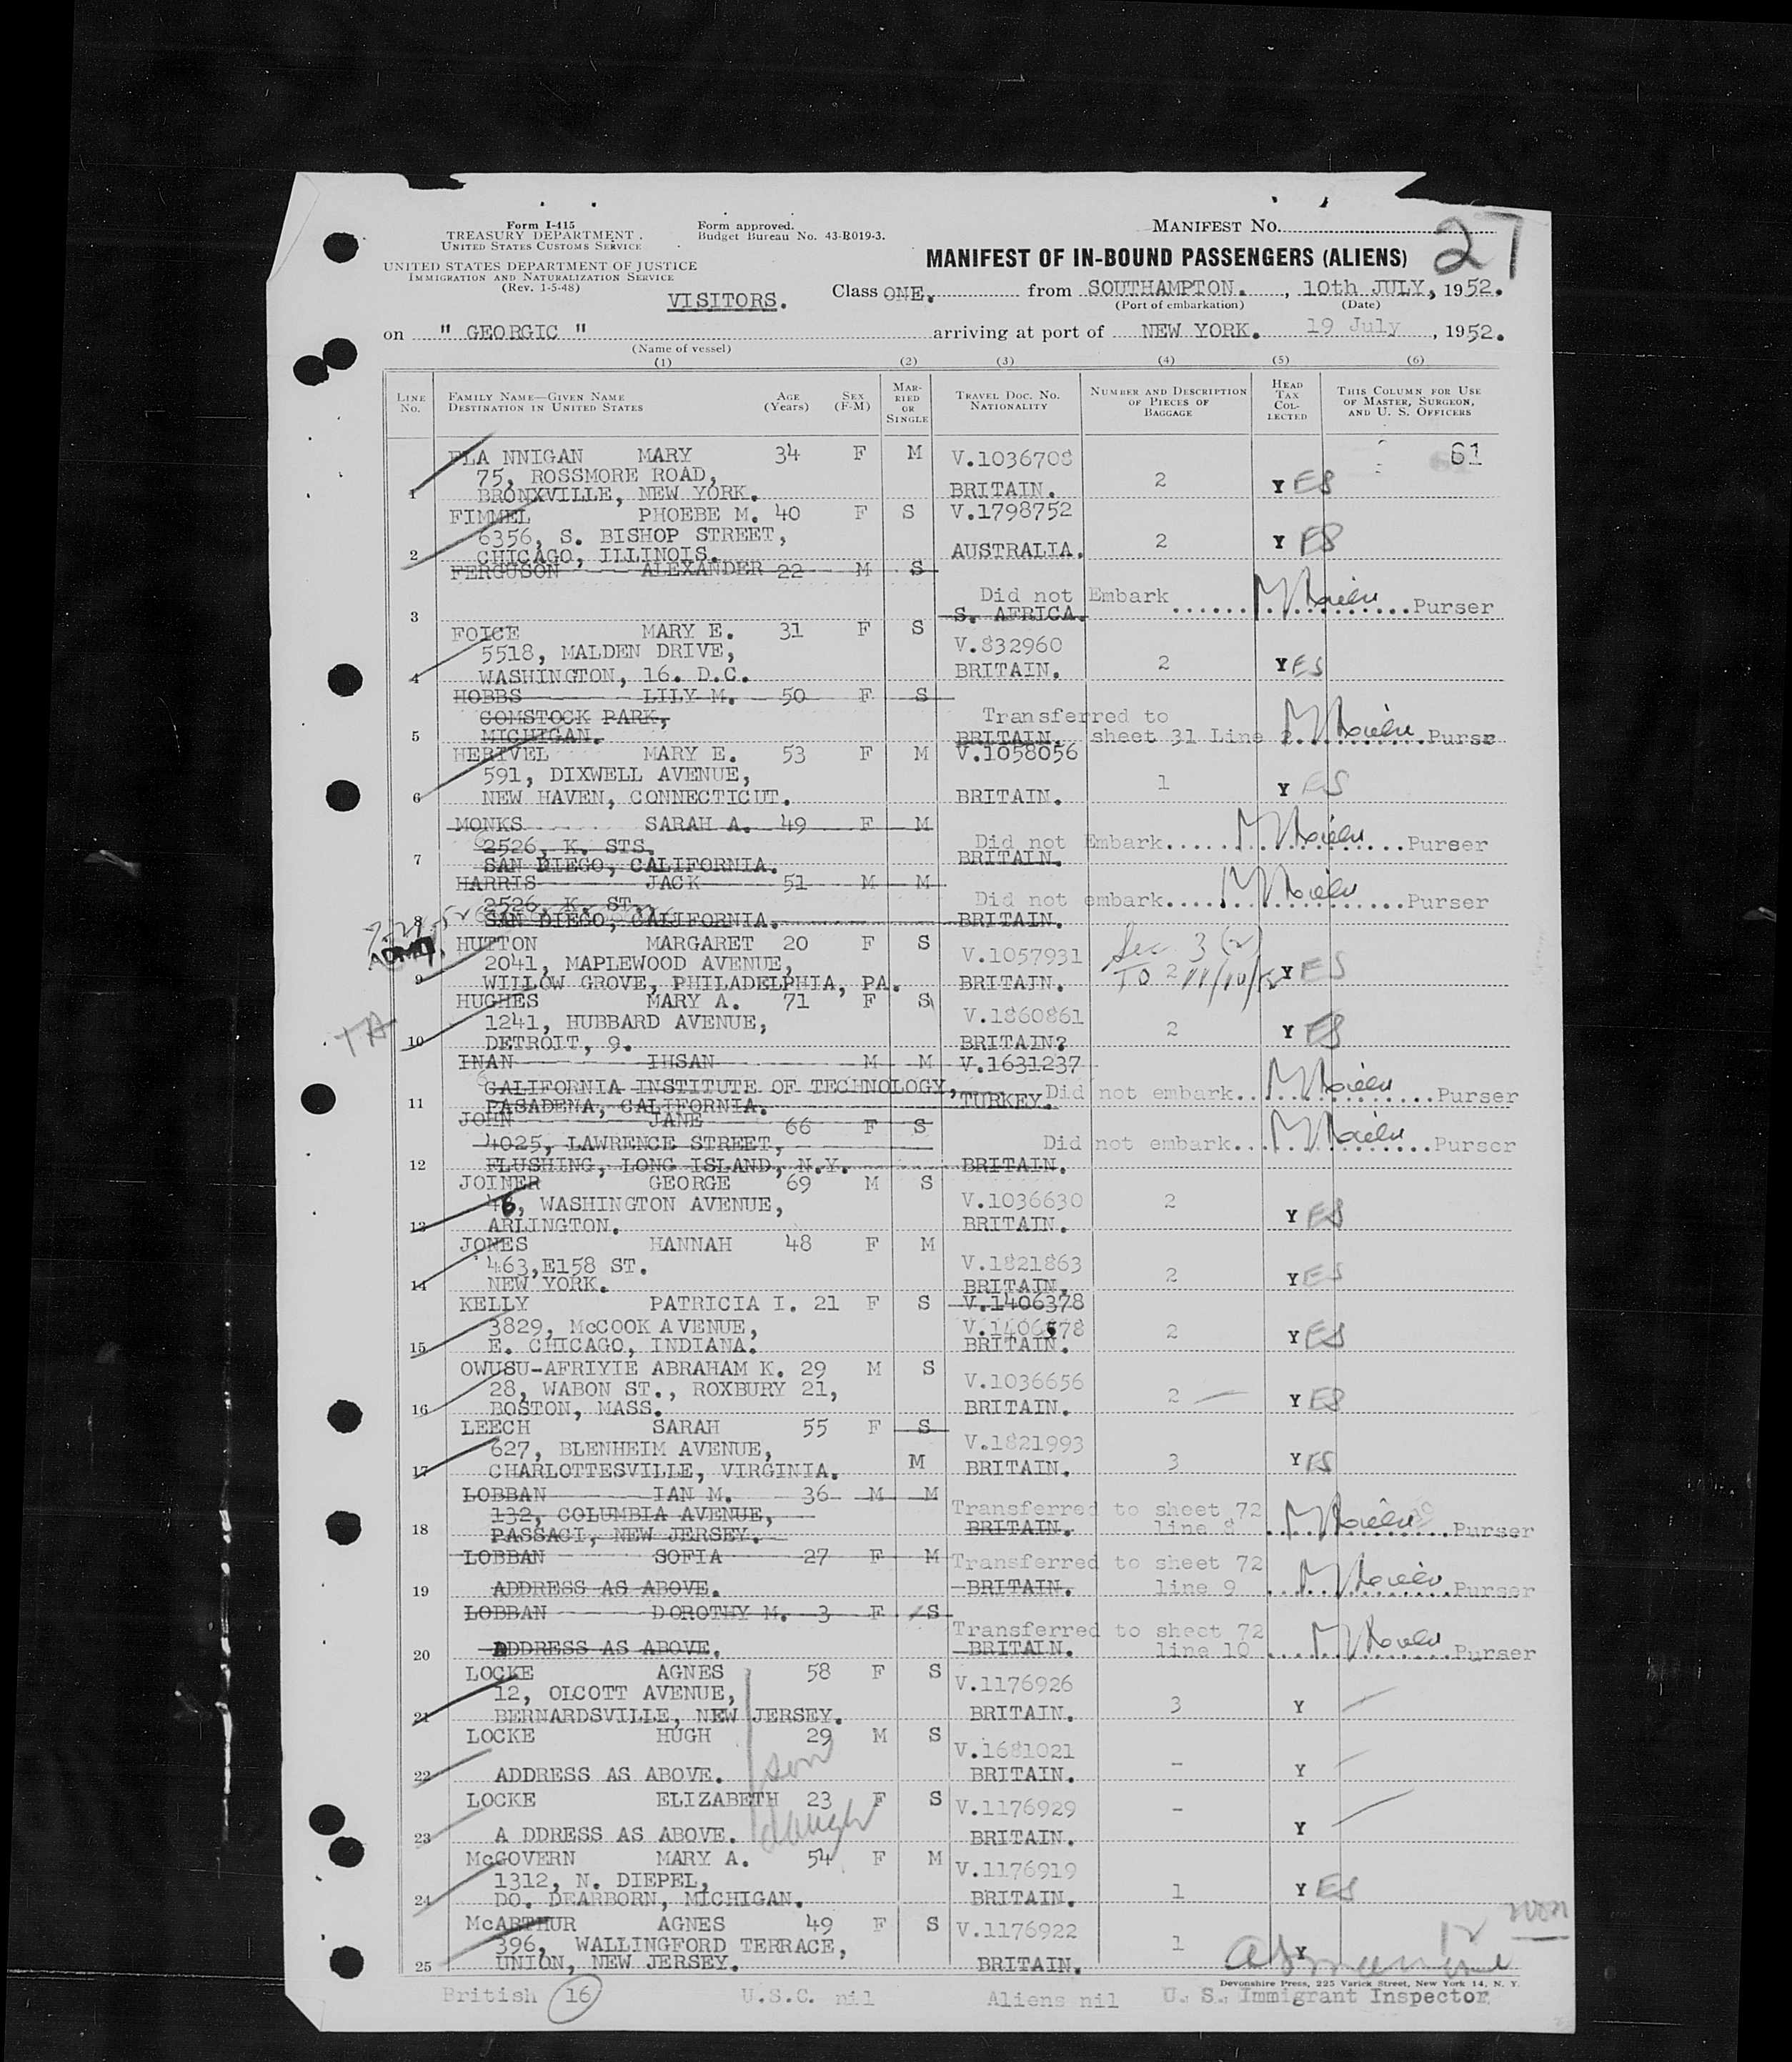 Form I-415
TREASURY DEPARTMENT.
UNITED STATES CUSTOMS SERVICE
Form approved.
Budget Bureau No. 43-R019-3.
MANIFEST No. 27
UNITED STATES DEPARTMENT OF JUSTICE
IMMIGRATION AND NATURALIZATION SERVICE
(Rev. 1-5-48)
MANIFEST OF IN-BOUND PASSENGERS (ALIENS)
VISITORS. Class ONE. from SOUTHAMPTON., 10th JULY, 1952.
(Port of embarkation) (Date)
on " GEORGIC " arriving at port of NEW YORK. 19 July, 1952.
(Name of vessel)
(1) (2) (3) (4) (5) (6)
LINE No. FAMILY NAME—GIVEN NAME DESTINATION IN UNITED STATES AGE (Years) SEX (F-M) MARRIED OR SINGLE TRAVEL DOC. NO. NATIONALITY NUMBER AND DESCRIPTION OF PIECES OF BAGGAGE HEAD TAX COLLECTED THIS COLUMN FOR USE OF MASTER, SURGEON, AND U. S. OFFICERS
FLA NNIGAN MARY 34 F M V.1036708 61
75, ROSSMORE ROAD, 2 YES
1 BRONXVILLE, NEW YORK. BRITAIN.
FIMMEL PHOEBE M. 40 F S V.1798752
6356, S. BISHOP STREET, 2 YES
2 CHICAGO, ILLINOIS. AUSTRALIA.
FERGUSON ALEXANDER 22 M S
Did not Embark Purser
3 S. AFRICA.
FOICE MARY E. 31 F S V.832960
5518, MALDEN DRIVE, 2 YES
4 WASHINGTON, 16. D.C. BRITAIN.
HOBBS LILY M. 50 F S
COMSTOCK PARK, Transferred to
5 MICHIGAN. BRITAIN. sheet 31 Line 2 Purse
HERIVEL MARY E. 53 F M V.1058056
591, DIXWELL AVENUE, 1 YES
6 NEW HAVEN, CONNECTICUT. BRITAIN.
MONKS SARAH A. 49 F M
2526, K. STS. Did not Embark Purser
7 SAN DIEGO, CALIFORNIA. BRITAIN.
HARRIS JACK 51 M M
2526, K. ST. Did not embark Purser
8 SAN DIEGO, CALIFORNIA. BRITAIN.
ADMT. HUTTON MARGARET 20 F S V.1057931 Sec 3 (2)
2041, MAPLEWOOD AVENUE, TO 2 11/10/52 YES
9 WILLOW GROVE, PHILADELPHIA, PA. BRITAIN.
HUGHES MARY A. 71 F S V.1860861
1241, HUBBARD AVENUE, 2 YES
10 DETROIT, 9. BRITAIN?
INAN IHSAN M M V.1631237
CALIFORNIA INSTITUTE OF TECHNOLOGY, Did not embark Purser
11 PASADENA, CALIFORNIA. TURKEY.
JOHN JANE 66 F S
4025, LAWRENCE STREET, Did not embark Purser
12 FLUSHING, LONG ISLAND, N.Y. BRITAIN.
JOINER GEORGE 69 M S V.1036630 2
46, WASHINGTON AVENUE, YES
13 ARLINGTON. BRITAIN.
JONES HANNAH 48 F M V.1821863
463,E158 ST. 2 YES
14 NEW YORK. BRITAIN.
KELLY PATRICIA I. 21 F S V.1406378
3829, McCOOK AVENUE, V.1406578 2 YES
15 E. CHICAGO, INDIANA. BRITAIN.
OWUSU-AFRIYIE ABRAHAM K. 29 M S V.1036656
28, WABON ST., ROXBURY 21, 2 YES
16 BOSTON, MASS. BRITAIN.
LEECH SARAH 55 F S V.1821993
627, BLENHEIM AVENUE, M 3 YES
17 CHARLOTTESVILLE, VIRGINIA. BRITAIN.
LOBBAN IAN M. 36 M M
132, COLUMBIA AVENUE, Transferred to sheet 72
18 PASSACI, NEW JERSEY. BRITAIN. line 8 Purser
LOBBAN SOFIA 27 F M Transferred to sheet 72
19 ADDRESS AS ABOVE. BRITAIN. line 9 Purser
LOBBAN DOROTHY M. 3 F S
Transferred to sheet 72
20 ADDRESS AS ABOVE. BRITAIN. line 10 Purser
LOCKE AGNES 58 F S V.1176926
12, OLCOTT AVENUE, 3 Y
21 BERNARDSVILLE, NEW JERSEY. BRITAIN.
LOCKE HUGH 29 M S V.1681021
son
22 ADDRESS AS ABOVE. BRITAIN. - Y
LOCKE ELIZABETH 23 F S V.1176929 -
daugh
23 A DDRESS AS ABOVE. BRITAIN. Y
McGOVERN MARY A. 54 F M V.1176919
1312, N. DIEPEL, 1 YES
24 DO. DEARBORN, MICHIGAN. BRITAIN.
McARTHUR AGNES 49 F S V.1176922
396, WALLINGFORD TERRACE, 1 Y 12
25 UNION, NEW JERSEY. BRITAIN.
Devonshire Press, 225 Varick Street, New York 14, N. Y.
British 16 U.S.C. nil Aliens nil U. S. Immigrant Inspector